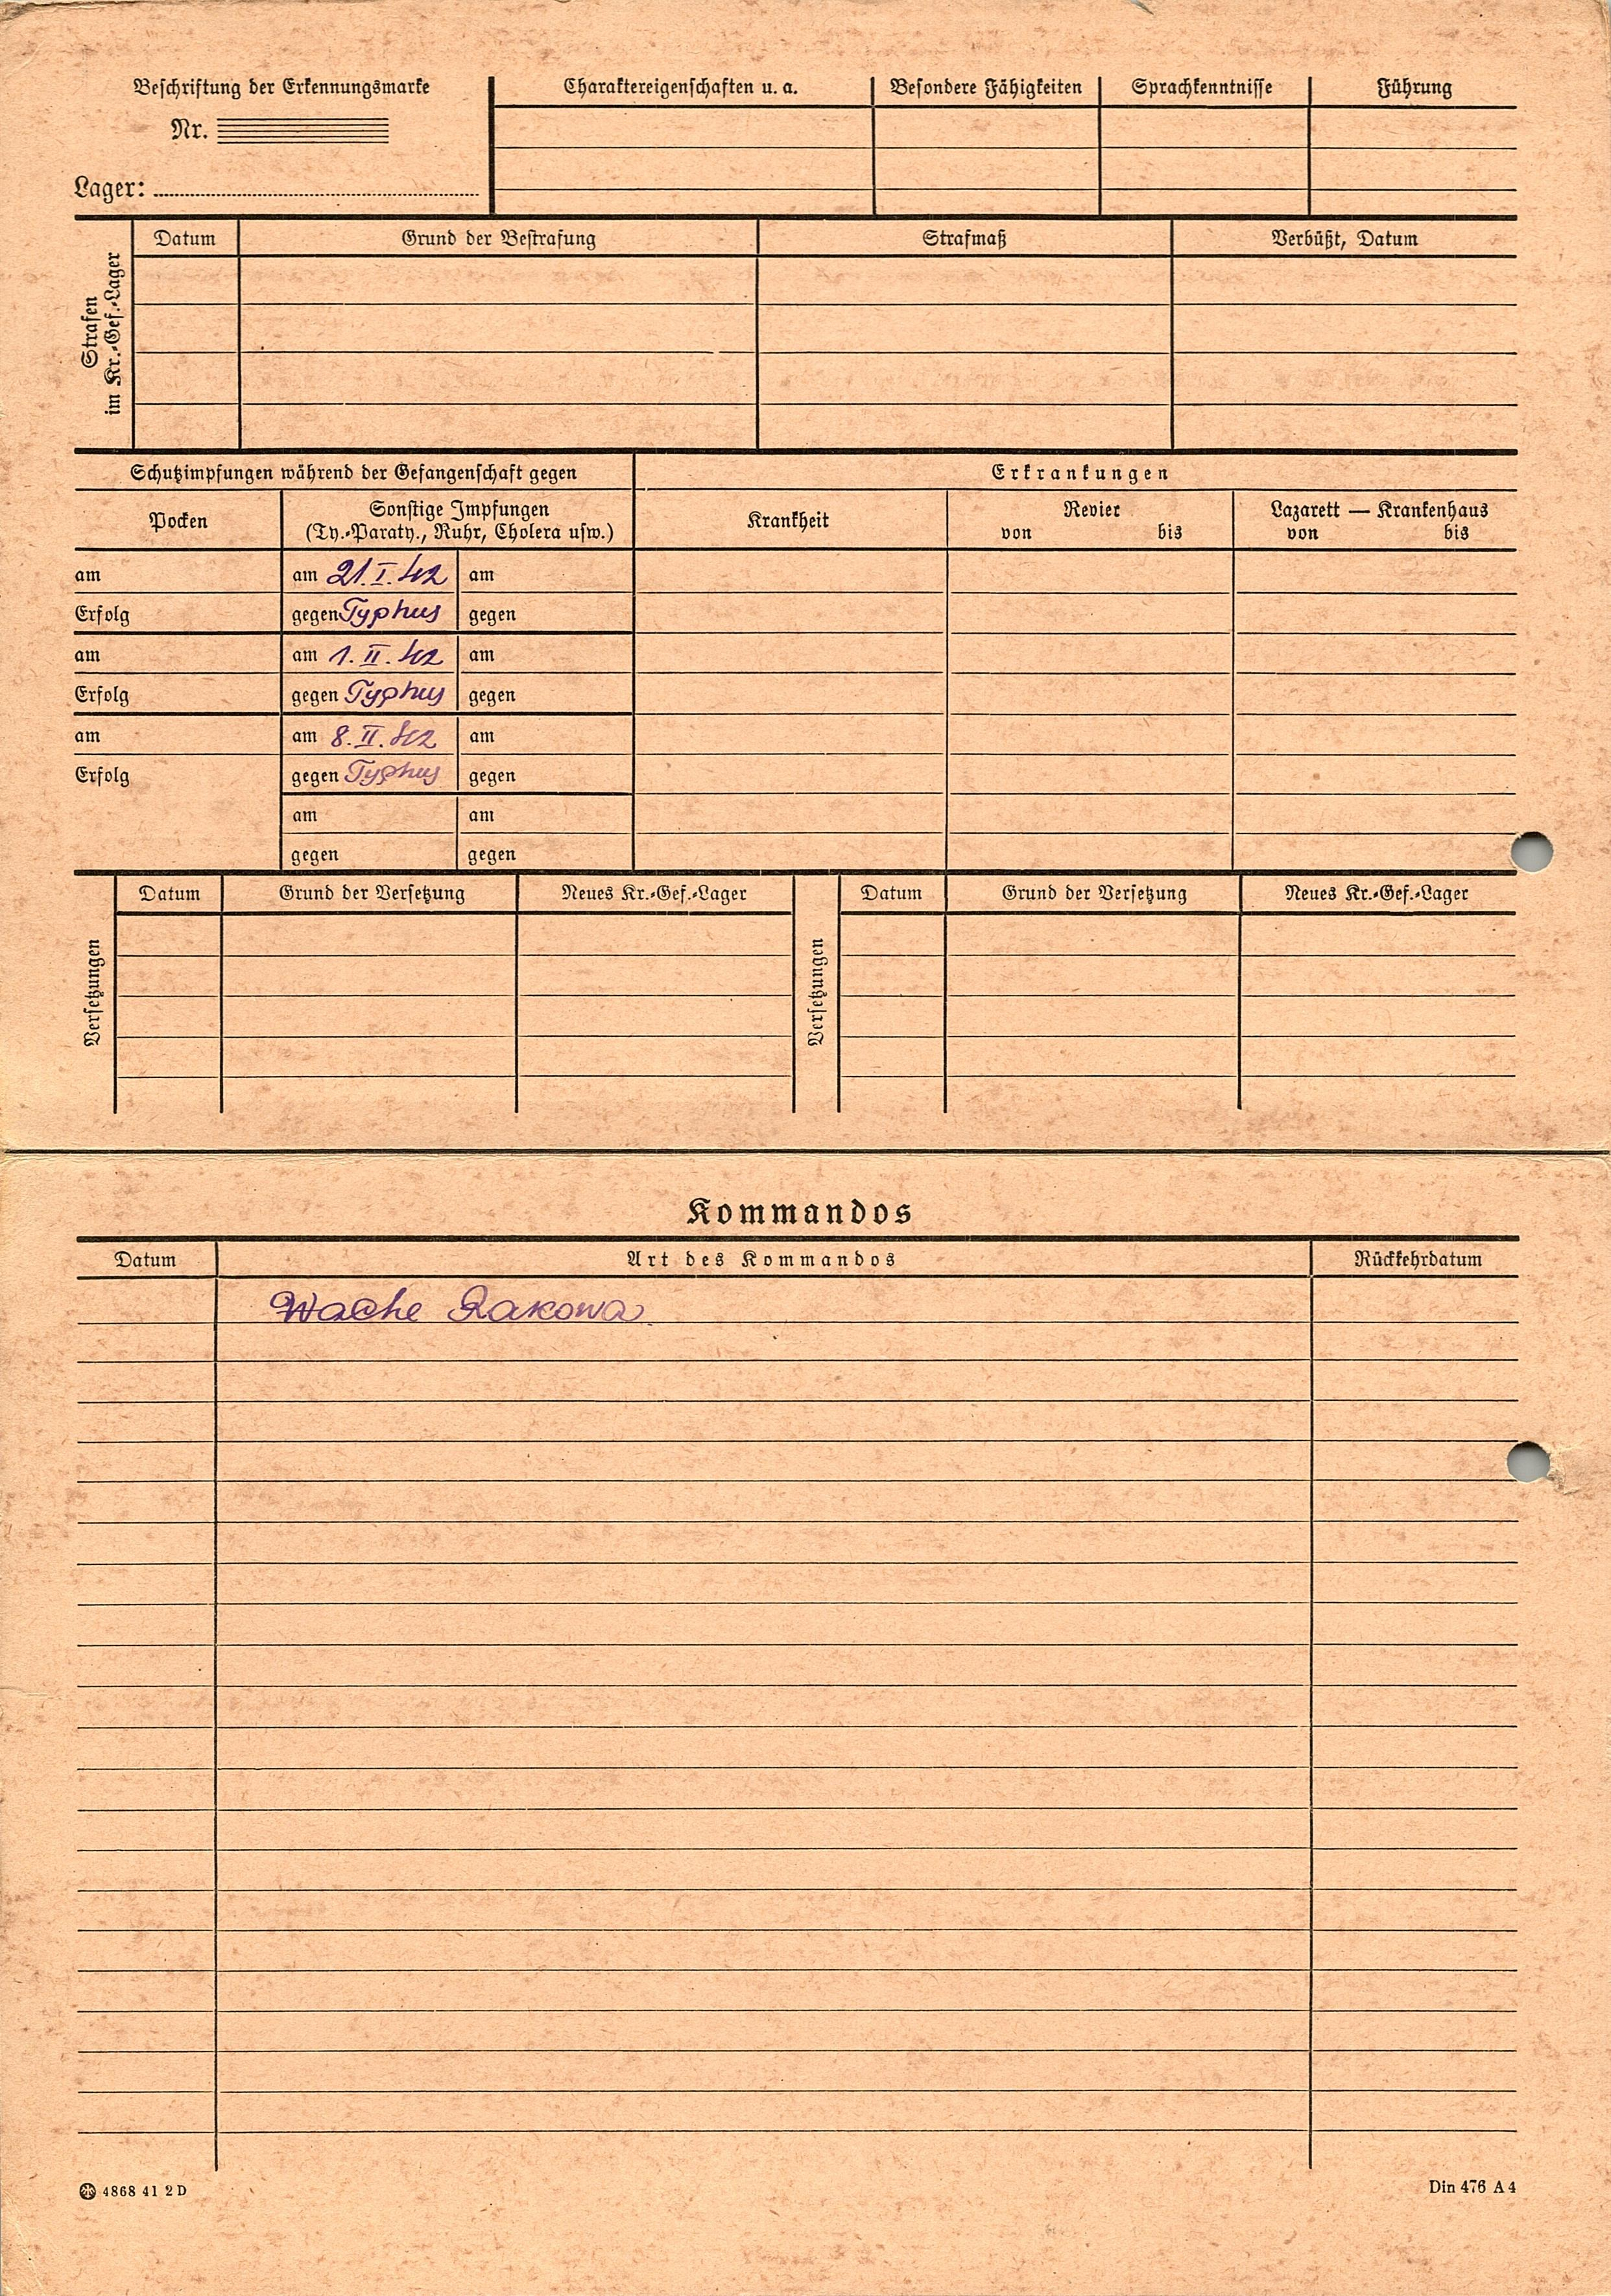 Beschriftung der Erkennungsmarke
Nr.
Lager:
Charaktereigenschaften u. a.
Besondere Fähigkeiten
Sprachkenntnisse
Führung
Strafen
im Kr.-Gef.-Lager
Datum
Grund der Bestrafung
Strafmaß
Verbüßt, Datum
Schutzimpfungen während der Gefangenschaft gegen
Erkrankungen
Pocken
Sonstige Impfungen
(Ty.-Paraty., Ruhr, Cholera usw.)
Krankheit
Revier
von bis
Lazarett — Krankenhaus
von bis
am
am 21. I. 42
am
Erfolg
gegen Typhus
gegen
am
am 1. II. 42
am
Erfolg
gegen Typhus
gegen
am
am 8. II. 42
am
Erfolg
gegen Typhus
gegen
am
am
gegen
gegen
Versetzungen
Datum
Grund der Versetzung
Neues Kr.-Gef.-Lager
Versetzungen
Datum
Grund der Versetzung
Neues Kr.-Gef.-Lager
Kommandos
Datum
Art des Kommandos
Rückkehrdatum
Wache Rakowa.
4868 41 2 D
Din 476 A 4